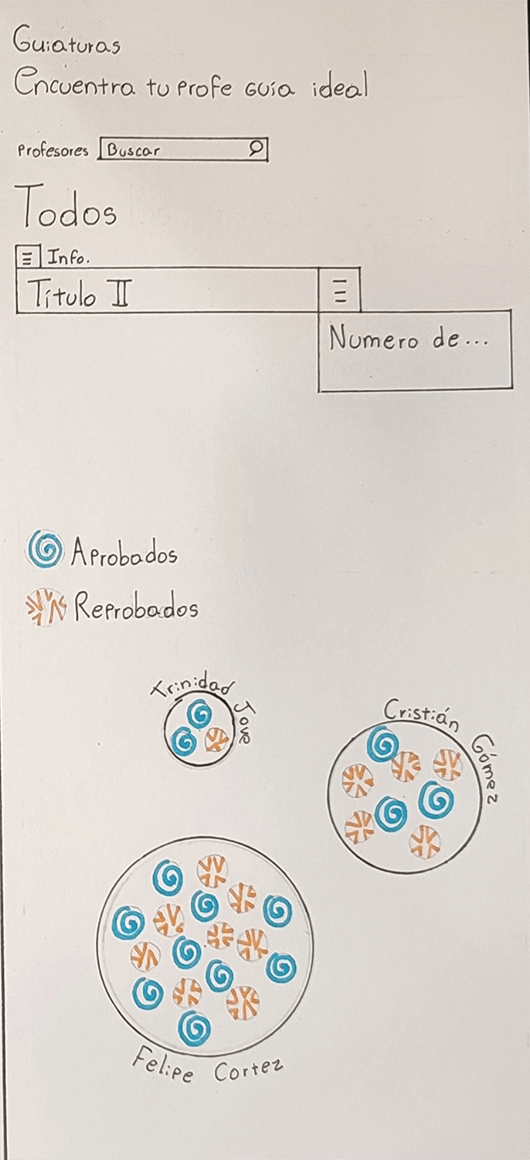 Guiaturas
Encuentra tu profe guía ideal
Profesores Buscar
Todos
Info.
Título II
Numero de...
Aprobados
Reprobados
Trinidad Jove
Cristián Gómez
Felipe Cortez